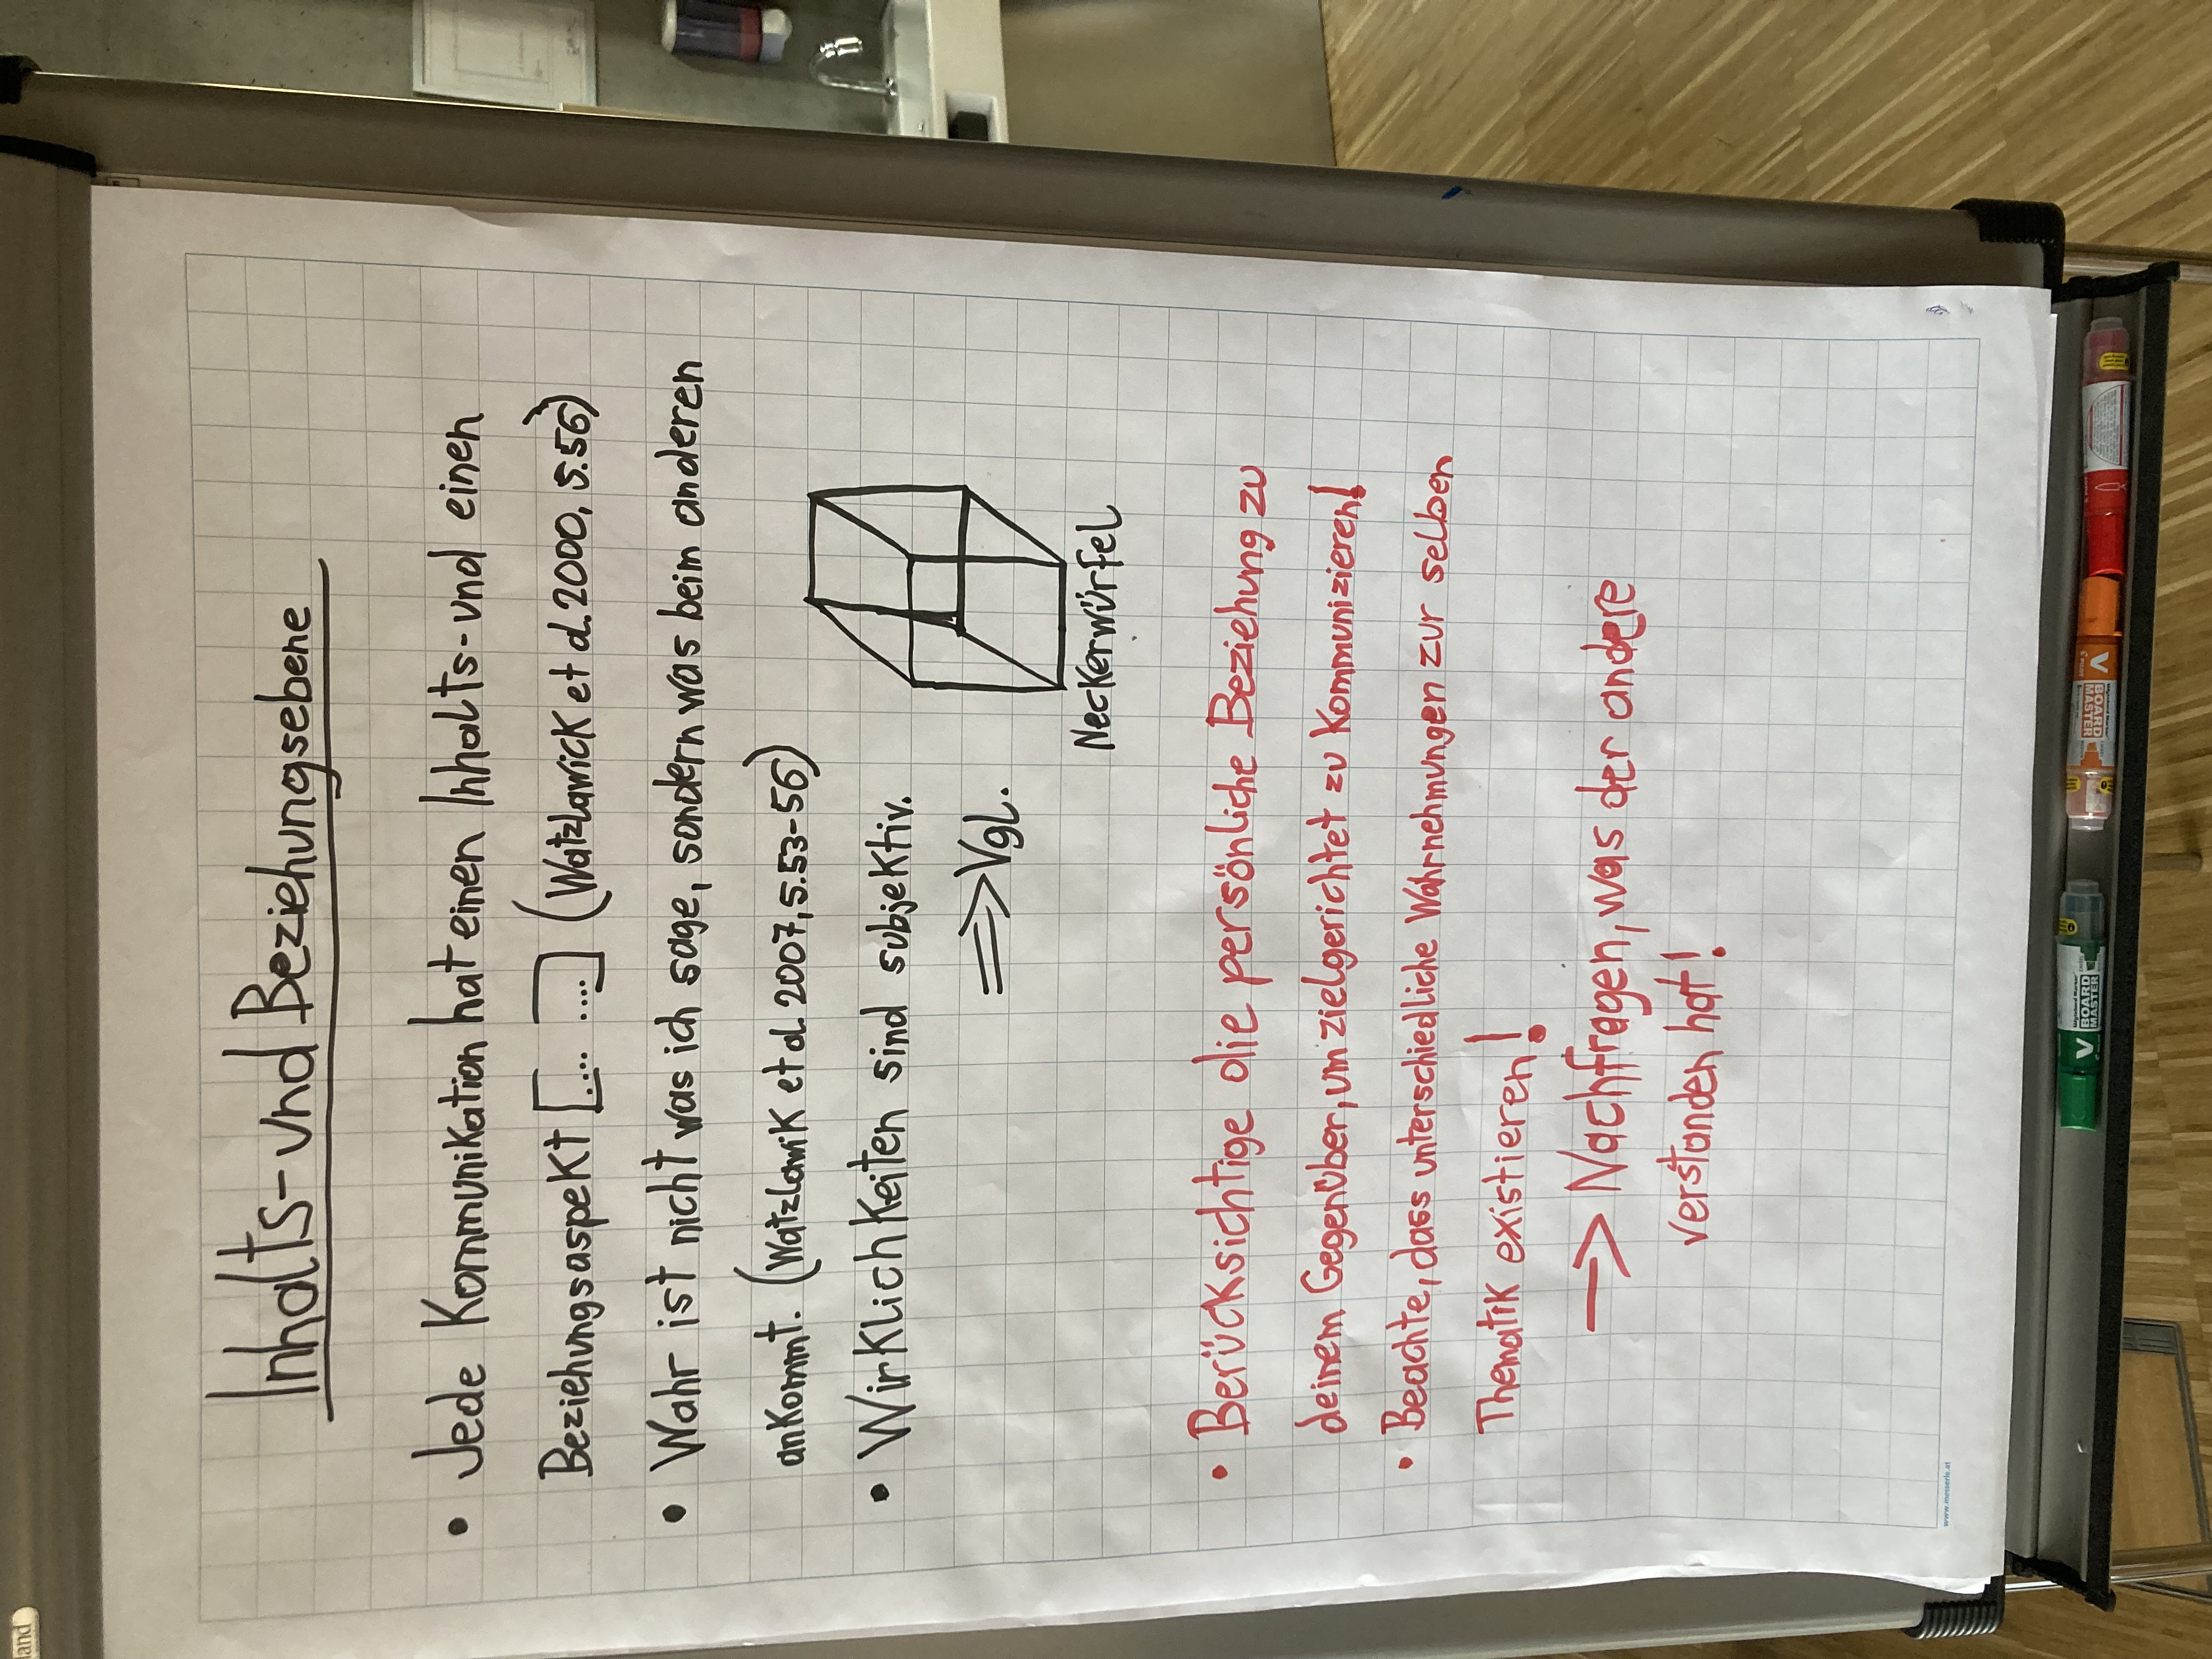 Inhalts- und Beziehungsebene
• Jede Kommunikation hat einen Inhalts- und einen
Beziehungsaspekt [... ...] (Watzlawick et al. 2000, S.56)
• Wahr ist nicht was ich sage, sondern was beim anderen
ankommt. (Watzlawik et al. 2007, S.53-56)
• Wirklichkeiten sind subjektiv.
=> Vgl.
Neckerwürfel
• Berücksichtige die persönliche Beziehung zu
deinem Gegenüber, um zielgerichtet zu kommunizieren!
• Beachte, dass unterschiedliche Wahrnehmungen zur selben
Thematik existieren!
-> Nachfragen, was der andere
verstanden hat!
www.messerle.at
V BOARD MASTER
V BOARD MASTER
and